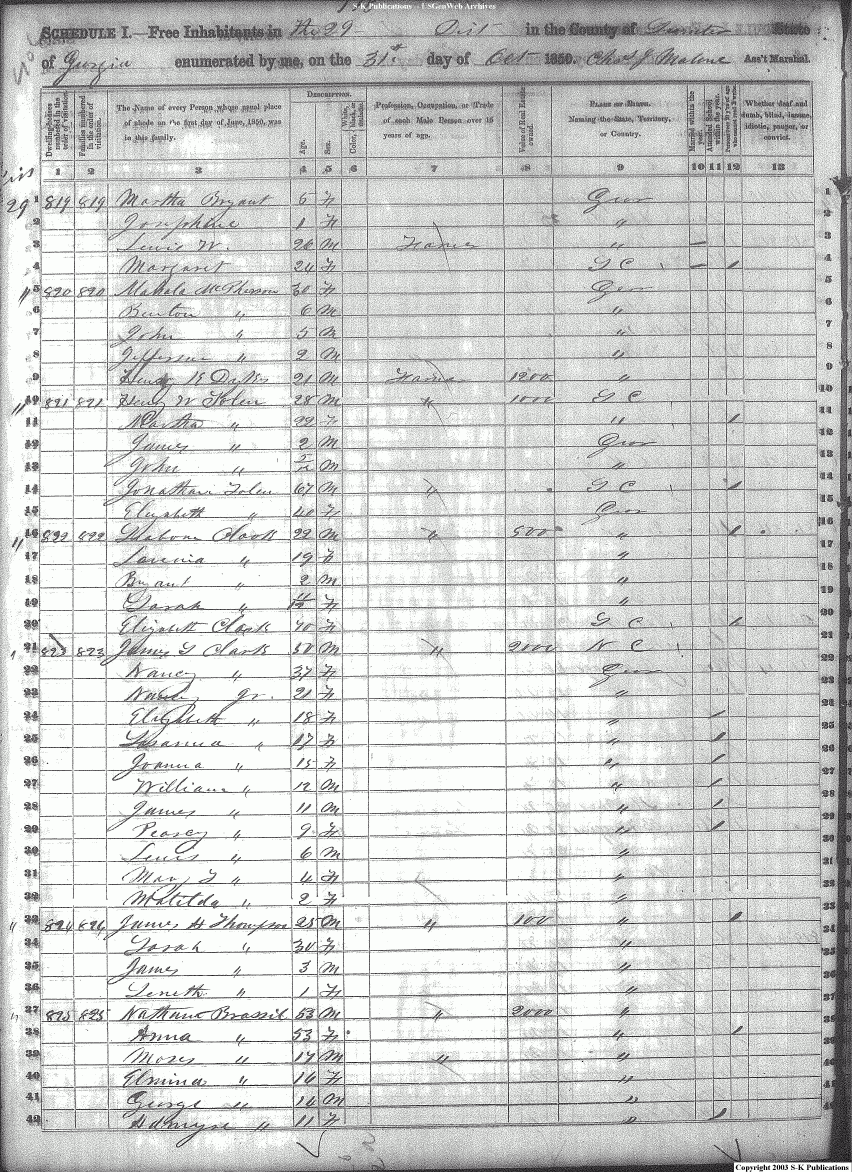 S-K Publications - USGenWeb Archives
SCHEDULE I.—Free Inhabitants in the 29 Dist in the County of Sumter State
of Georgia enumerated by me, on the 31st day of Oct 1850. Chas J Malone Ass't Marshal.
Dwelling-houses numbered in the order of visitation.
Families numbered in the order of visitation.
The Name of every Person whose usual place of abode on the first day of June, 1850, was in this family.
DESCRIPTION.
Age.
Sex.
Color, White, black, or mulatto.
Profession, Occupation, or Trade of each Male Person over 15 years of age.
Value of Real Estate owned.
PLACE OF BIRTH. Naming the State, Territory, or Country.
Married within the year.
Attended School within the year.
Whether deaf and dumb, blind, insane, idiotic, pauper, or convict.
1 2 3 4 5 6 7 8 9 10 11 12 13
29 1 819 819 Martha Bryant 5 F Geo 1
2 Josephine 1 F " 2
3 Lewis W. 26 M Farmer " 3
4 Margaret 24 F S C 4
5 820 820 Mahala McPherson 30 F Geo 5
6 Burton " 6 M " 6
7 John " 5 M " 7
8 Jefferson " 2 M " 8
9 Henry K 21 M Farmer 1200 " 9
10 821 821 Henry W Tolen 28 M " 1000 S C 10
11 Martha " 22 F " 11
12 James " 2 M Geo 12
13 John " M " 13
14 Jonathan Tolen 67 M " S C 14
15 Elizabeth " 40 F Geo 15
16 822 822 Clark 22 M " 500 " 16
17 Lavinia " 19 F " 17
18 Bryant " 2 M " 18
19 Sarah " F " 19
20 Elizabeth Clark 40 F S C 20
21 823 823 James S Clark 50 M " 2000 N C 21
22 Nancy " 37 F Geo 22
23 Nancy Jr. 21 F " 23
24 Elizabeth " 18 F "
25 Susanna " 17 F "
26 Joanna " 15 F "
27 William " 12 M "
28 James " 11 M "
29 Pearcy " 9 F "
30 Lewis " 6 M "
31 Mary S " 4 F "
32 Matilda " 2 F "
33 824 824 James H Thompson 25 M " 100 "
34 Sarah " 30 F "
35 James " 3 M "
36 " 1 F "
37 825 825 Nathan Brassil 53 M " 2000 "
38 Anna " 53 F "
39 Moses " 17 M " "
40 Elmina " 16 F "
41 George " 14 M "
42 " 11 F "
Copyright 2003 S-K Publications